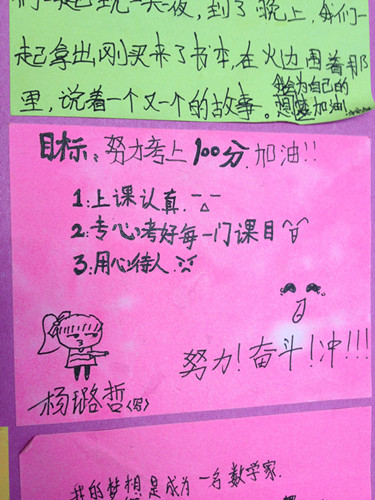 们一起玩一天一夜，到了晚上，我们一
起拿出刚买来了书本，在火边围着那
里，说着一个又一个的故事。
我会为自己的
想梦加油！
目标：努力考上100分.加油!!
1:上课认真.
2:专心考好每一门课目
3:用心待人.
努力!奋斗!冲!!!
杨璐哲(写)
我的梦想是成为一名数学家.